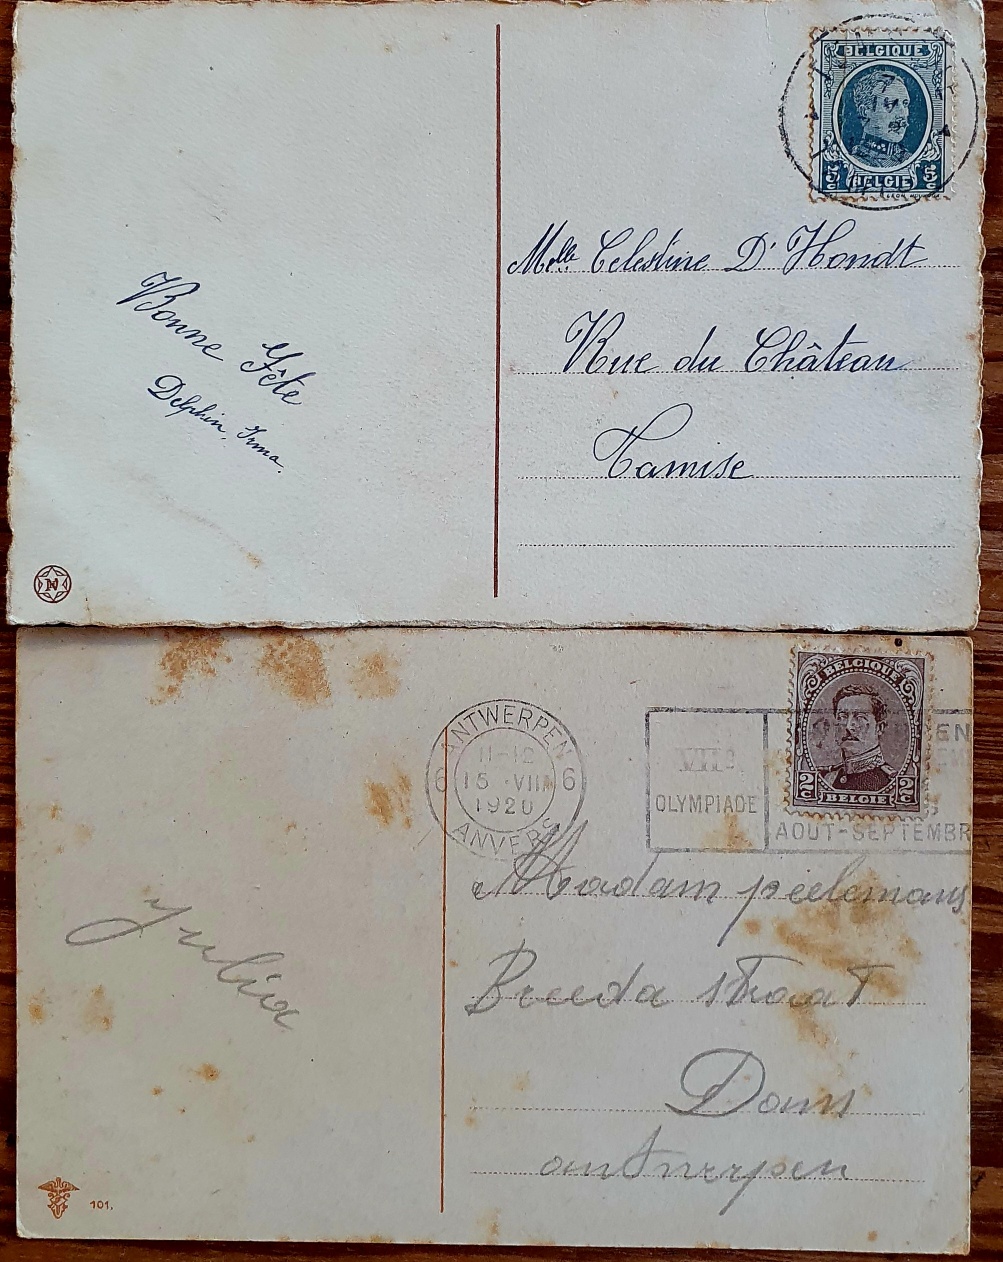 BELGIQUE
5c 5c
BELGIE
Melle Celestine D'Hondt
Rue du Château
Tamise
Bonne Fête
Delphin, Irma.
N
BELGIQUE
2c 2c
BELGIE
ANTWERPEN
11-12
6 15 VIII 6
1920
ANVERS
VIIe
OLYMPIADE
EN
AOUT-SEPTEMBR
Madam peelemans
Breeda straat
Dam
antwerpen
Julia
101.